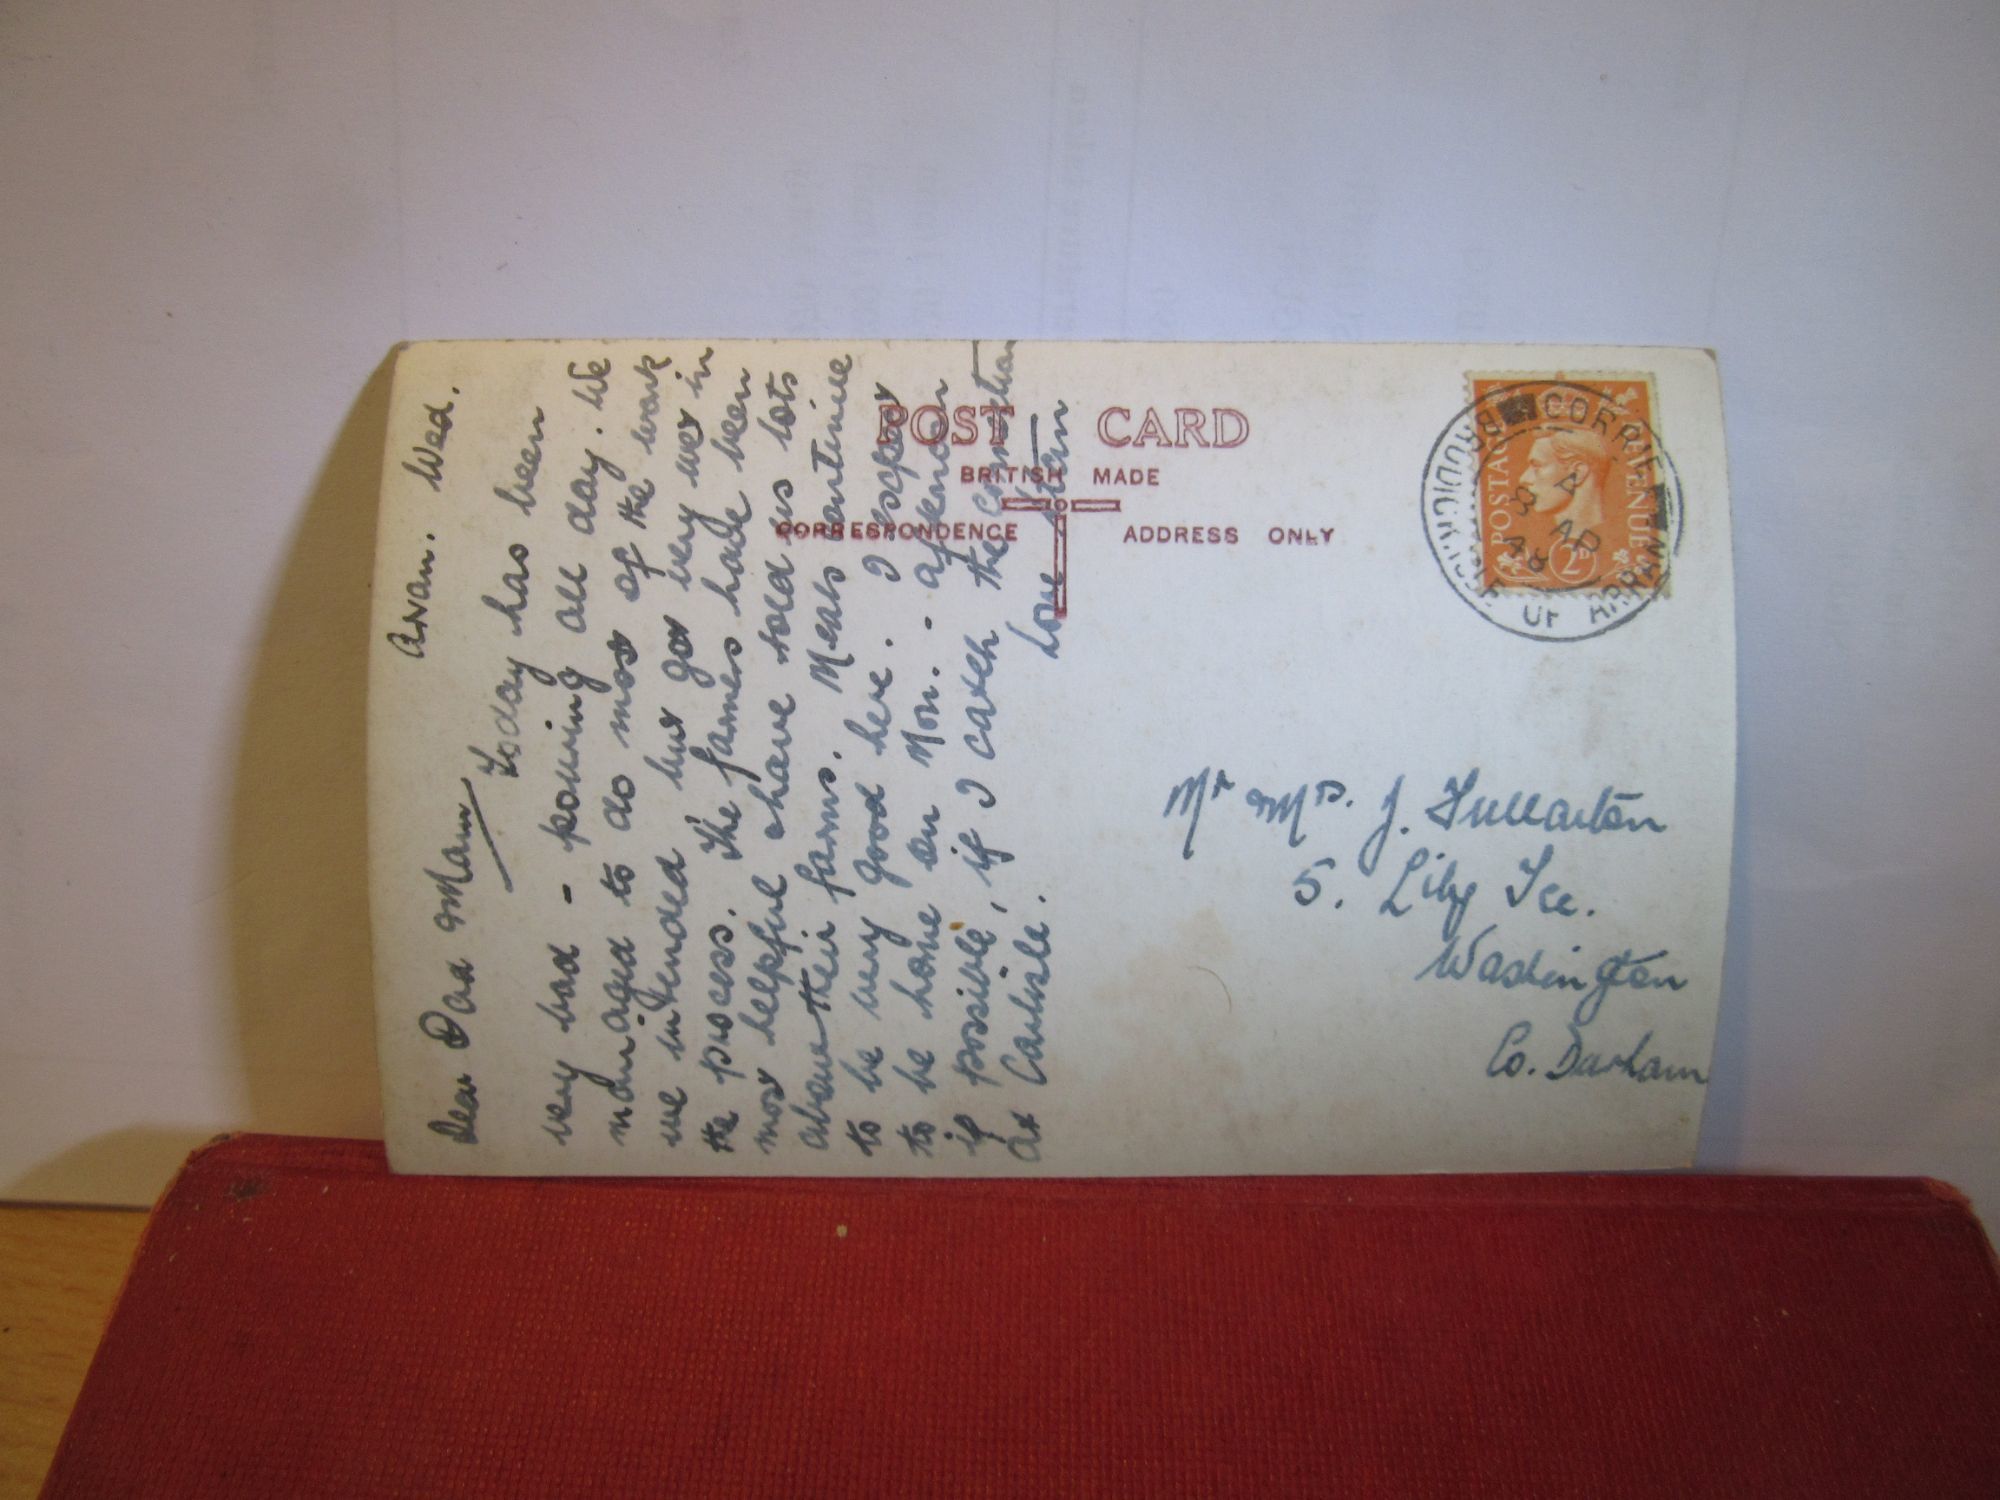 Arran. Wed.
Dear Dad & Mam
Today has been
very bad - pouring all day. We
managed to do most of the work
we intended but got very wet in
the process. The famers have been
most helpful & have told us lots
about their farms. Meals continue
to be very good here. I expect
to be home on Mon. - afternoon
if possible, if I catch the connection
at Carlisle.
Love
POST CARD
BRITISH MADE
CORRESPONDENCE
ADDRESS ONLY
Mr & Mrs. J. Fullarton
5. Lily Tce.
Washington
Co. Durham
POSTAGE
REVENUE
2D
CORRIE
BRODICK ISLE OF ARRAN
AP
48